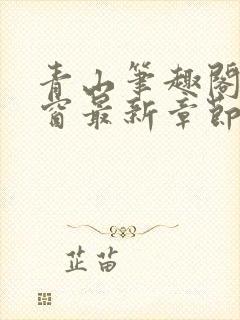 青山筆趣閣
窗最新章節
芷苗